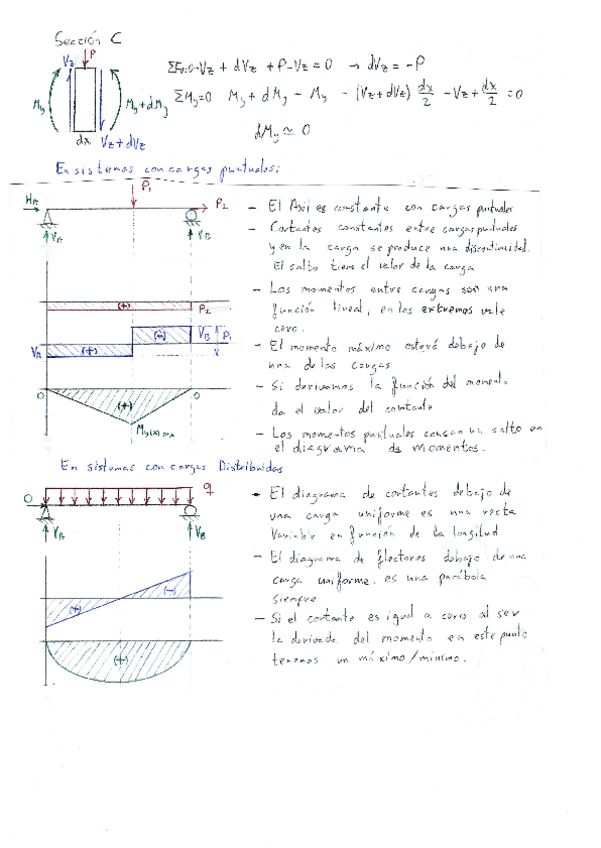 Sección C
P
Vz
My
My+dMy
dx
Vz+dVz
ΣFv=0→Vz + dVz + P - Vz = 0 → dVz = -P
ΣMy=0 My + dMy - My - (Vz+dVz) dx/2 - Vz + dx/2 = 0
dMy ≃ 0
En sistemas con cargas puntuales:
HA
P1
P2
VA
VB
(+)
P2
VA
(+)
(-)
VB
P1
0
0
(+)
My(x) max
- El Axil es constante con cargas puntuales
- Cortantes constantes entre cargas puntuales
y en la carga se produce una discontinuidad.
El salto tiene el valor de la carga
- Los momentos entre cargas son una
función lineal, en los extremos vale
cero.
- El momento máximo estará debajo de
una de las cargas
- Si derivamos la función del momento
da el valor del cortante
- Los momentos puntuales causan un salto en
el diagrama de momentos.
En sistemas con cargas Distribuidas
0
q
VA
VB
(+)
(-)
(+)
- El diagrama de cortantes debajo de
una carga uniforme es una recta
Variable en función de la longitud
- El diagrama de flectores debajo de una
carga uniforme, es una parábola
siempre
- Si el cortante es igual a cero al ser
la derivada del momento en este punto
tenemos un máximo/mínimo.